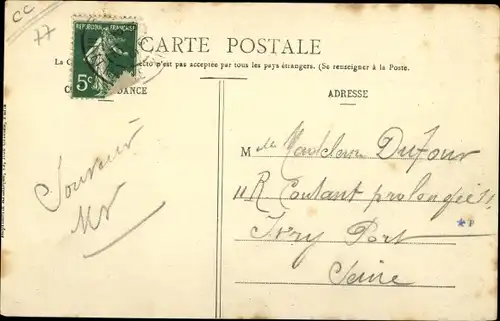 CC
77
REPUBLIQUE FRANÇAISE
5c
CARTE POSTALE
La C recto n'est pas acceptée par tous les pays étrangers. (Se renseigner à la Poste.
C DANCE
ADRESSE
Souvenir
Mlle Madeleine Dufour
11 R Coutant prolongée 11
Ivry Port
Seine